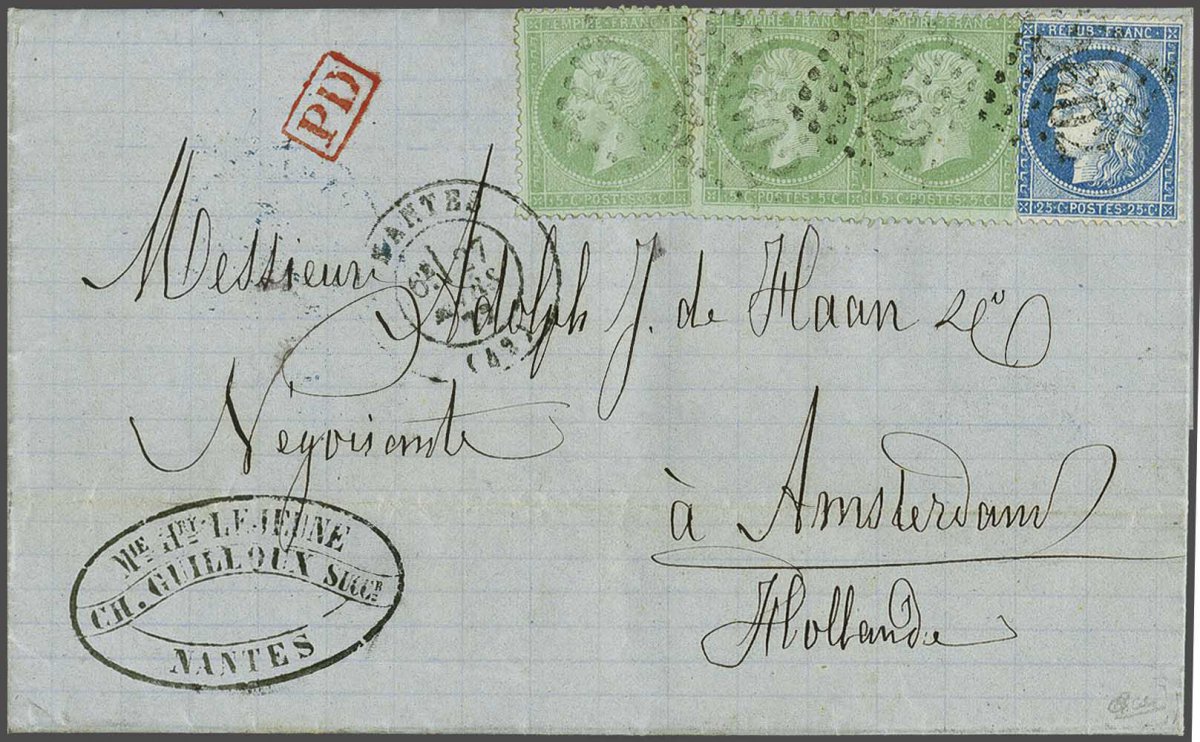 PD
EMPIRE FRANC
5 C POSTES 5 C
EMPIRE FRANC
POSTES 5 C
EMPIRE FRANC
POSTES 5 C
REPUB FRANC
25 C POSTES 25 C
NANTES
27
(42)
Messieurs Adolph J. de Haan &
Negoisante
à Amsterdam
Hollande
MIE HRY LEJEUNE
CH. GUILLOUX SUCCR
NANTES